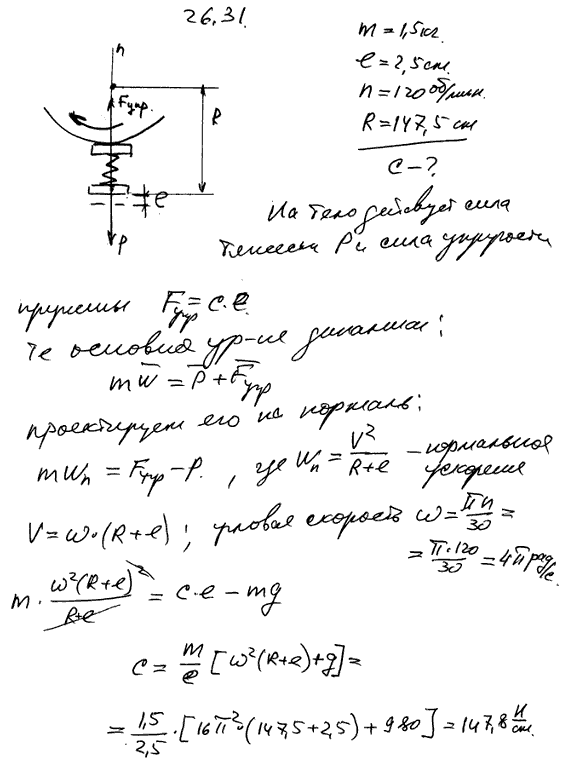 26.31.
n
Fупр.
R
e
P
m = 1,5 кг.
e = 2,5 см.
n = 120 об/мин.
R = 147,5 см
c – ?
На тело действует сила
тяжести P и сила упругости
пружины Fупр = c·e.
основное ур-ие динамики:
mw̅ = P̅ + F̅упр
проектируем его на нормаль:
mwn = Fупр – P. , где Wn = V²/(R+e) – нормальное ускорение
V = ω·(R+e) ; угловая скорость ω = πn/30 =
= π·120/30 = 4π рад/с.
m · ω²(R+e)²/(R+e) = c·e – mg
c = m/e [ω²(R+e)+g] =
= 1,5/2,5 · [16π²·(147,5+2,5) + 980] = 147,8 н/см.